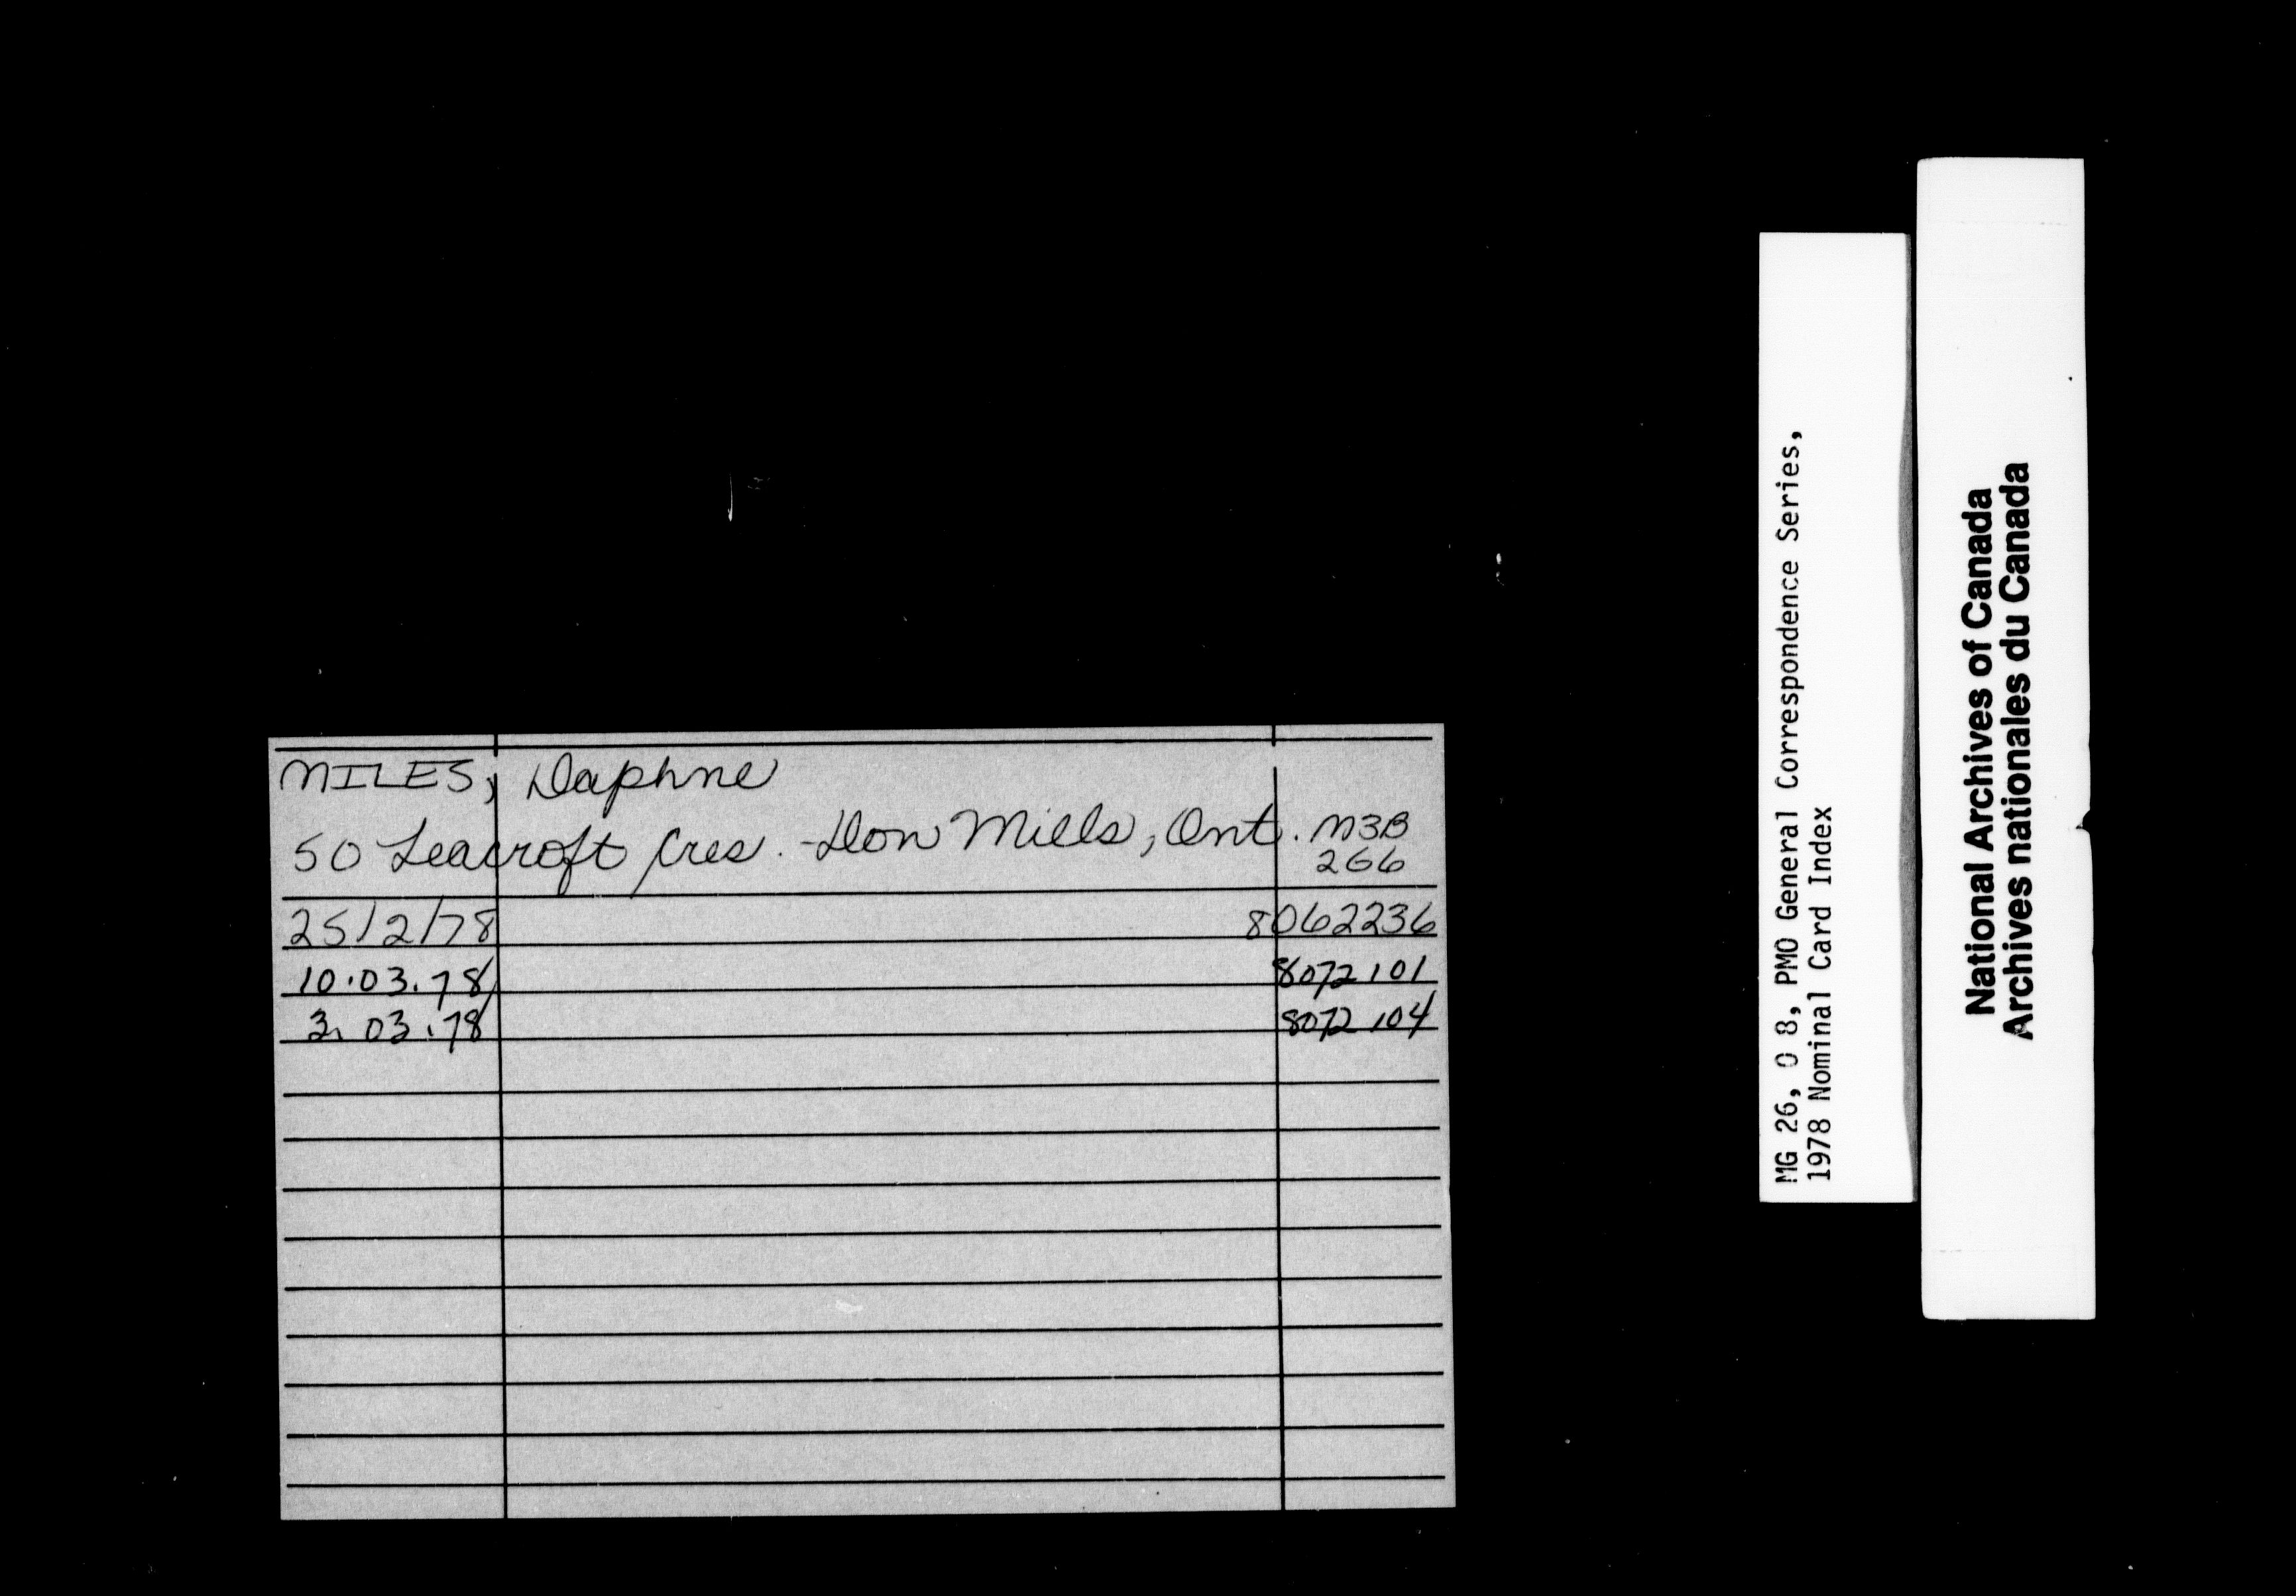 MILES, Daphne
50 Leacroft Cres. - Don Mills, Ont. M3B
2G6
25/2/78 8062236
10.03.78 8072101
3.03.78 8072104
MG 26, O 8, PMO General Correspondence Series,
1978 Nominal Card Index
National Archives of Canada
Archives nationales du Canada